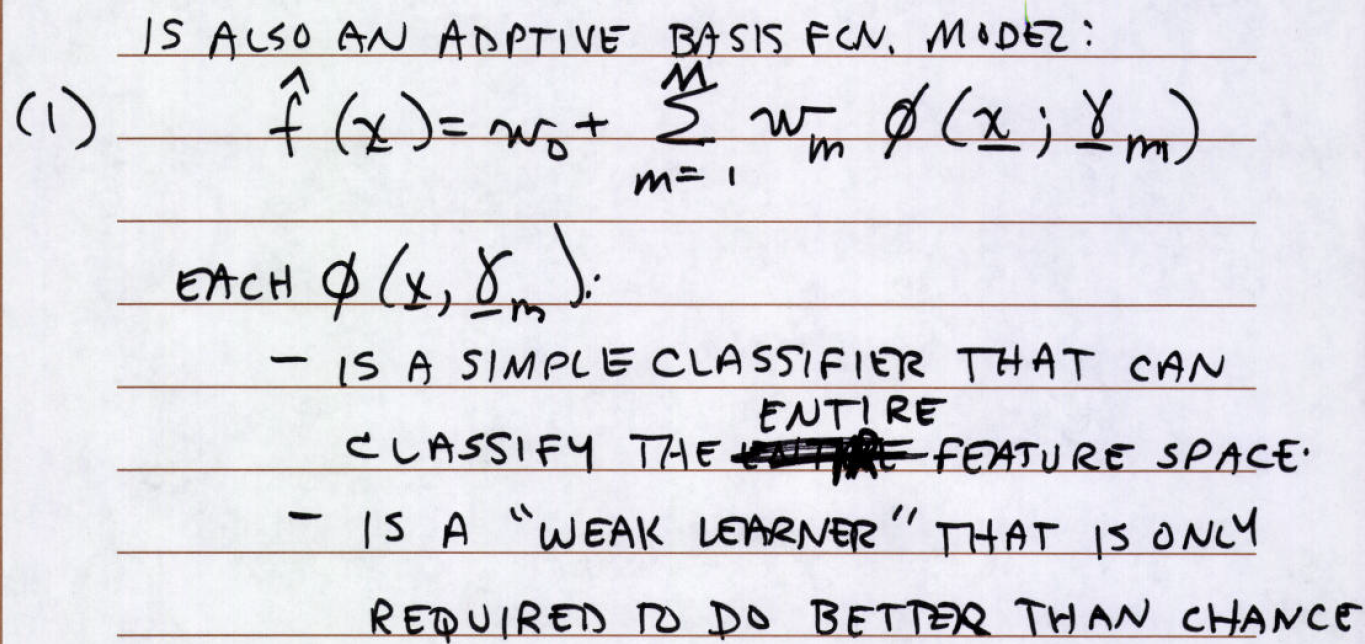 IS ALSO AN ADPTIVE BASIS FCN. MODEL:
(1) f̂ (x̲) = w₀ + Σ_{m=1}^{M} w_m ϕ (x̲ ; γ̲_m)
EACH ϕ (x̲, γ̲_m):
– IS A SIMPLE CLASSIFIER THAT CAN
CLASSIFY THE ENTIRE FEATURE SPACE.
– IS A "WEAK LEARNER" THAT IS ONLY
REQUIRED TO DO BETTER THAN CHANCE